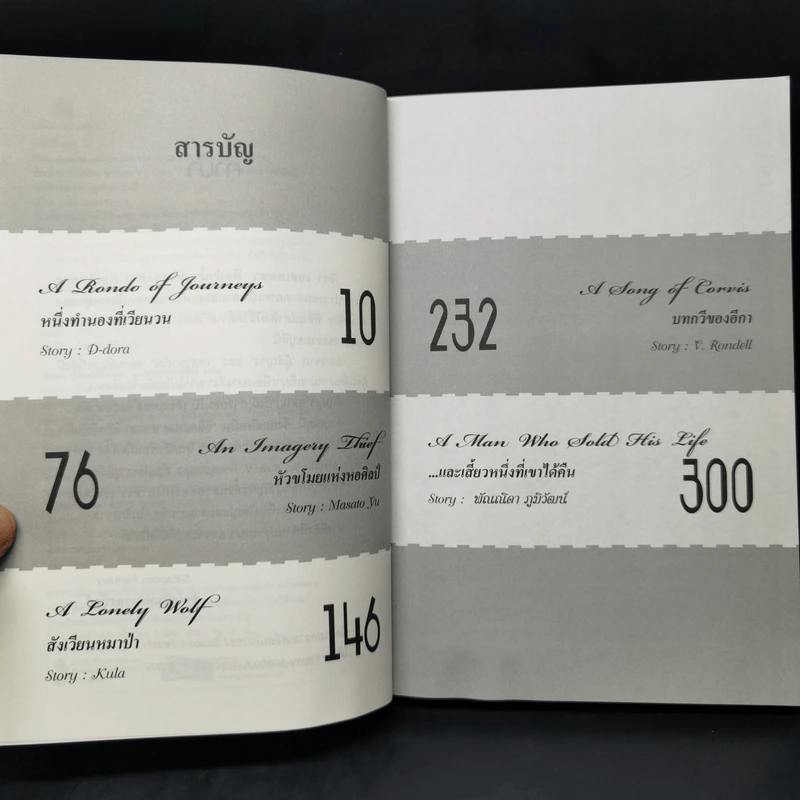 สารบัญ
A Rondo of Journeys
หนึ่งทำนองที่เวียนวน
Story : D-dora
10
76
An Imagery Thief
หัวขโมยแห่งหอศิลป์
Story : Masato Yu
A Lonely Wolf
สังเวียนหมาป่า
Story : Kula
146
232
A Song of Corvis
บทกวีของอีกา
Story : V. Rondell
A Man Who Sold His Life
...และเสี้ยวหนึ่งที่เขาได้คืน
Story : พัณณิดา ภูมิวัฒน์
300